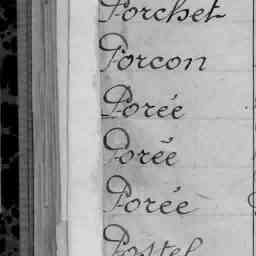 Porchet
Porcon
Porée
Porée
Porée
Postel